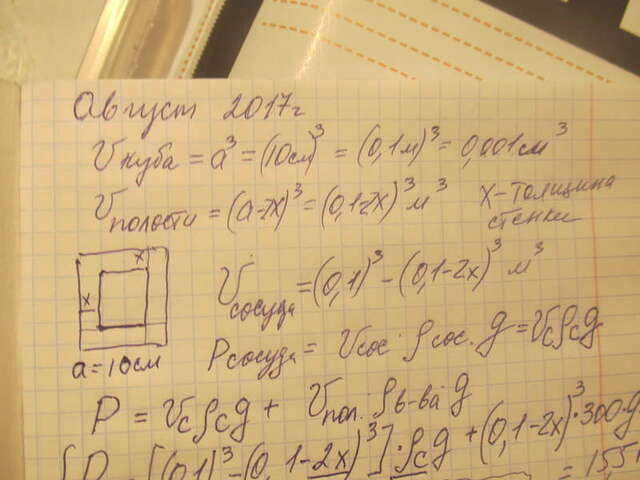 Август 2017г
Vкуба = a³ = (10см)³ = (0,1м)³ = 0,001см³
Vполости = (a-2x)³ = (0,1-2x)³ м³
x-толщина
стенки
x
x
a=10см
Vсосуда = (0,1)³ - (0,1-2x)³ м³
Pсосуда = Vсос · ρсос. g = Vcρcg
P = Vcρcg + Vпол. · ρв-ва g
P = [(0,1)³ - (0,1-2x)³] · ρcg + (0,1-2x)³ · 300 · g
= 15,5